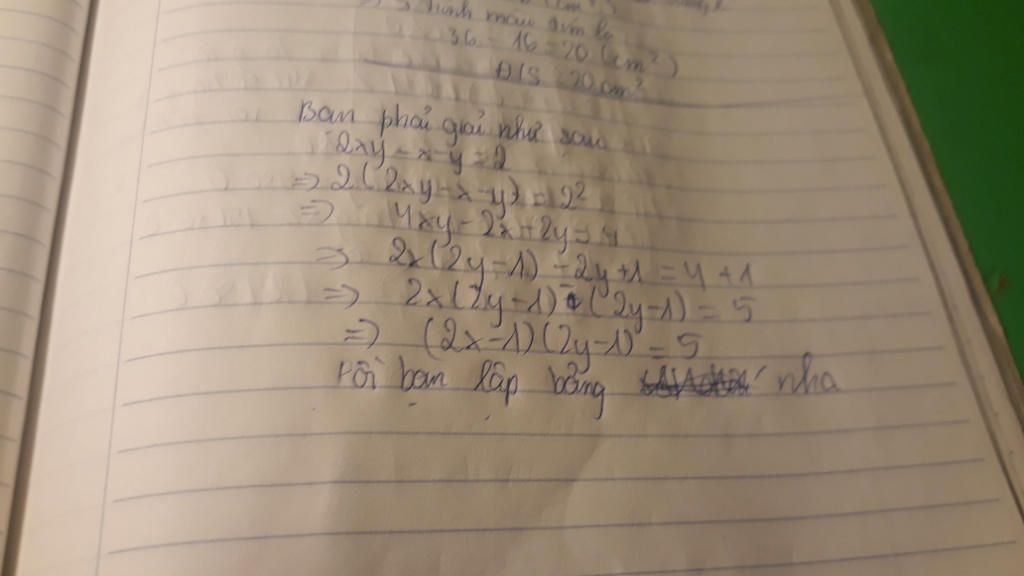 hình màu tím là
36 - 16 = 20 (cm²)
Đ/S: 20 cm²
Bạn phải giải như sau
2xy - x - y = 2
=> 2(2xy - x - y) = 2²
=> 4xy - 2x - 2y = 4
=> 2x(2y - 1) - 2y + 1 = 4 + 1
=> 2x(2y - 1) - (2y - 1) = 5
=> (2x - 1)(2y - 1) = 5
rồi bạn lập bảng nha